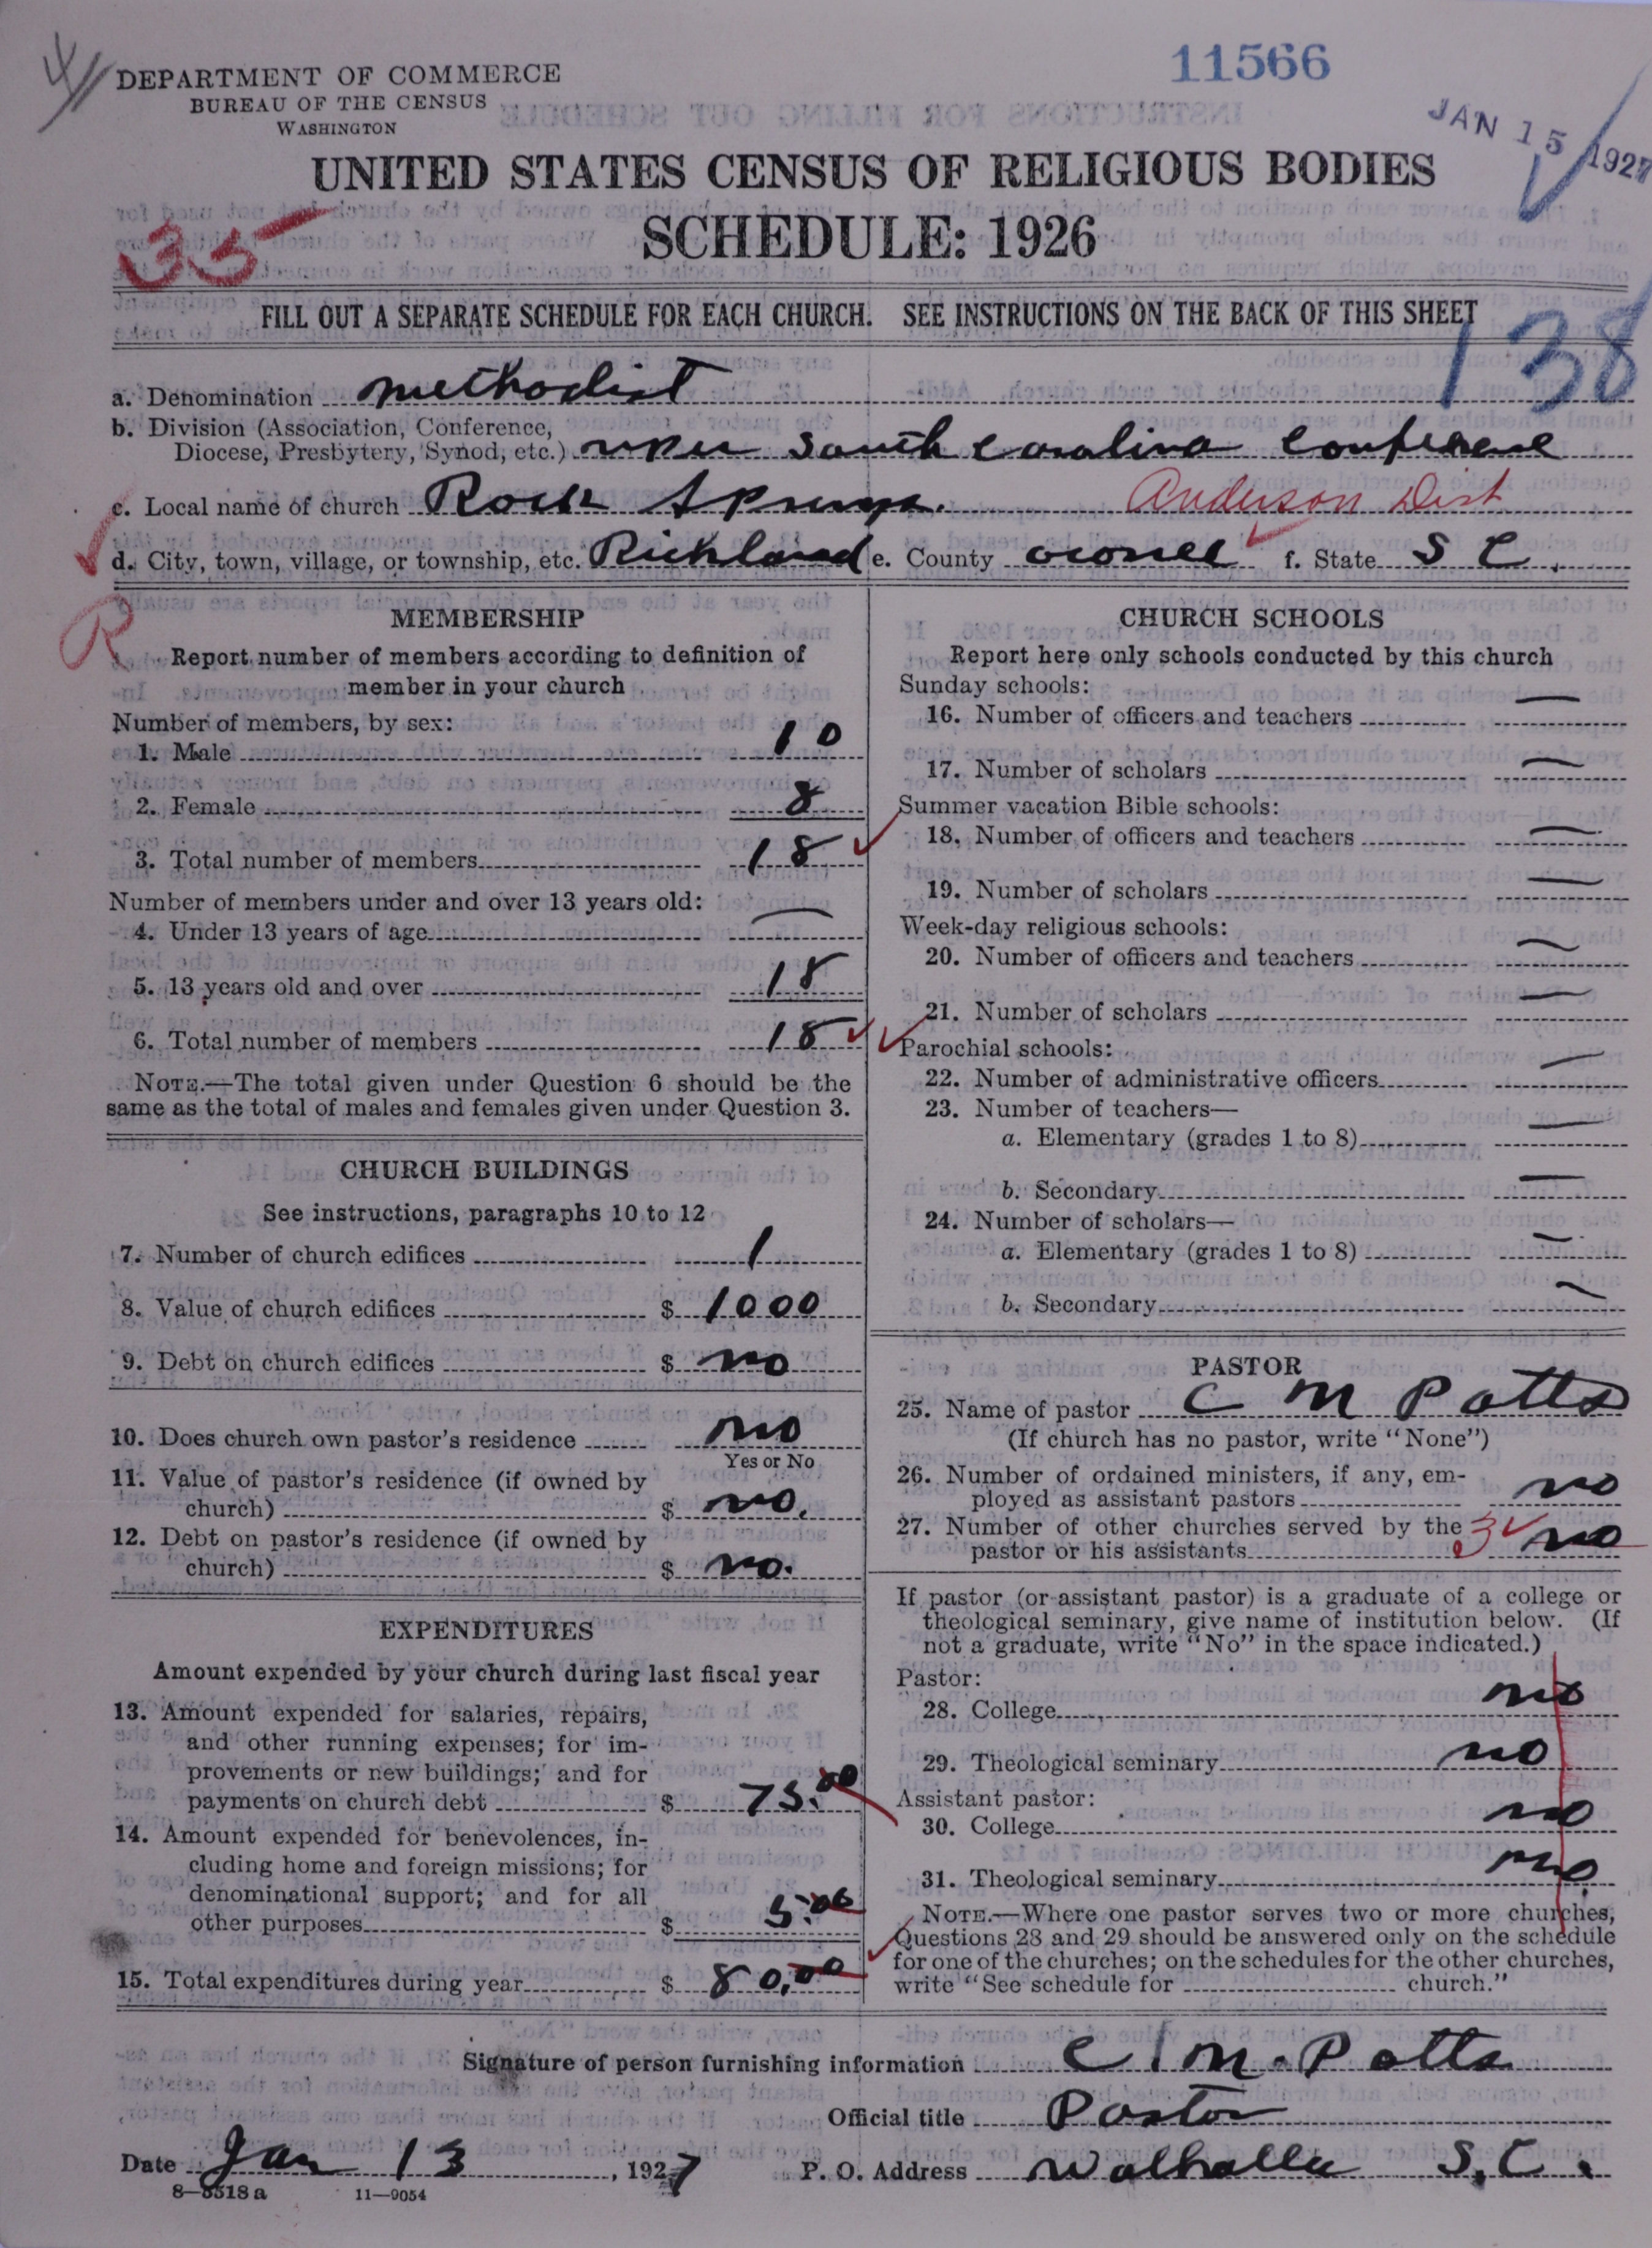 11566
DEPARTMENT OF COMMERCE
BUREAU OF THE CENSUS
WASHINGTON
JAN 15 1927
UNITED STATES CENSUS OF RELIGIOUS BODIES
SCHEDULE: 1926
35
FILL OUT A SEPARATE SCHEDULE FOR EACH CHURCH. SEE INSTRUCTIONS ON THE BACK OF THIS SHEET
138
a. Denomination methodist
b. Division (Association, Conference,
Diocese, Presbytery, Synod, etc.) upper South Carolina Conference
c. Local name of church Rock Springs. Anderson Dist
d. City, town, village, or township, etc. Richland e. County oconee f. State S C.
R
MEMBERSHIP
Report number of members according to definition of
member in your church
Number of members, by sex:
1. Male 10
2. Female 8
3. Total number of members 18
Number of members under and over 13 years old:
4. Under 13 years of age —
5. 13 years old and over 18
6. Total number of members 18
NOTE.—The total given under Question 6 should be the
same as the total of males and females given under Question 3.
CHURCH BUILDINGS
See instructions, paragraphs 10 to 12
7. Number of church edifices 1
8. Value of church edifices $ 1000
9. Debt on church edifices $ no
10. Does church own pastor's residence no
Yes or No
11. Value of pastor's residence (if owned by
church) $ no.
12. Debt on pastor's residence (if owned by
church) $ no.
EXPENDITURES
Amount expended by your church during last fiscal year
13. Amount expended for salaries, repairs,
and other running expenses; for im-
provements or new buildings; and for
payments on church debt $ 75.00
14. Amount expended for benevolences, in-
cluding home and foreign missions; for
denominational support; and for all
other purposes $ 5.00
15. Total expenditures during year $ 80.00
CHURCH SCHOOLS
Report here only schools conducted by this church
Sunday schools:
16. Number of officers and teachers —
17. Number of scholars —
Summer vacation Bible schools:
18. Number of officers and teachers —
19. Number of scholars —
Week-day religious schools:
20. Number of officers and teachers —
21. Number of scholars —
Parochial schools:
22. Number of administrative officers —
23. Number of teachers—
a. Elementary (grades 1 to 8) —
b. Secondary —
24. Number of scholars—
a. Elementary (grades 1 to 8) —
b. Secondary —
PASTOR
25. Name of pastor C M Potts
(If church has no pastor, write "None")
26. Number of ordained ministers, if any, em-
ployed as assistant pastors no
27. Number of other churches served by the 3
pastor or his assistants no
If pastor (or assistant pastor) is a graduate of a college or
theological seminary, give name of institution below. (If
not a graduate, write "No" in the space indicated.)
Pastor:
28. College no
29. Theological seminary no
Assistant pastor:
30. College no
31. Theological seminary no.
NOTE.—Where one pastor serves two or more churches,
Questions 28 and 29 should be answered only on the schedule
for one of the churches; on the schedules for the other churches,
write "See schedule for church."
Signature of person furnishing information C M. Potts
Official title Pastor
Date Jan 13, 1927 P. O. Address Walhalla S. C.
8—5518 a 11—9054